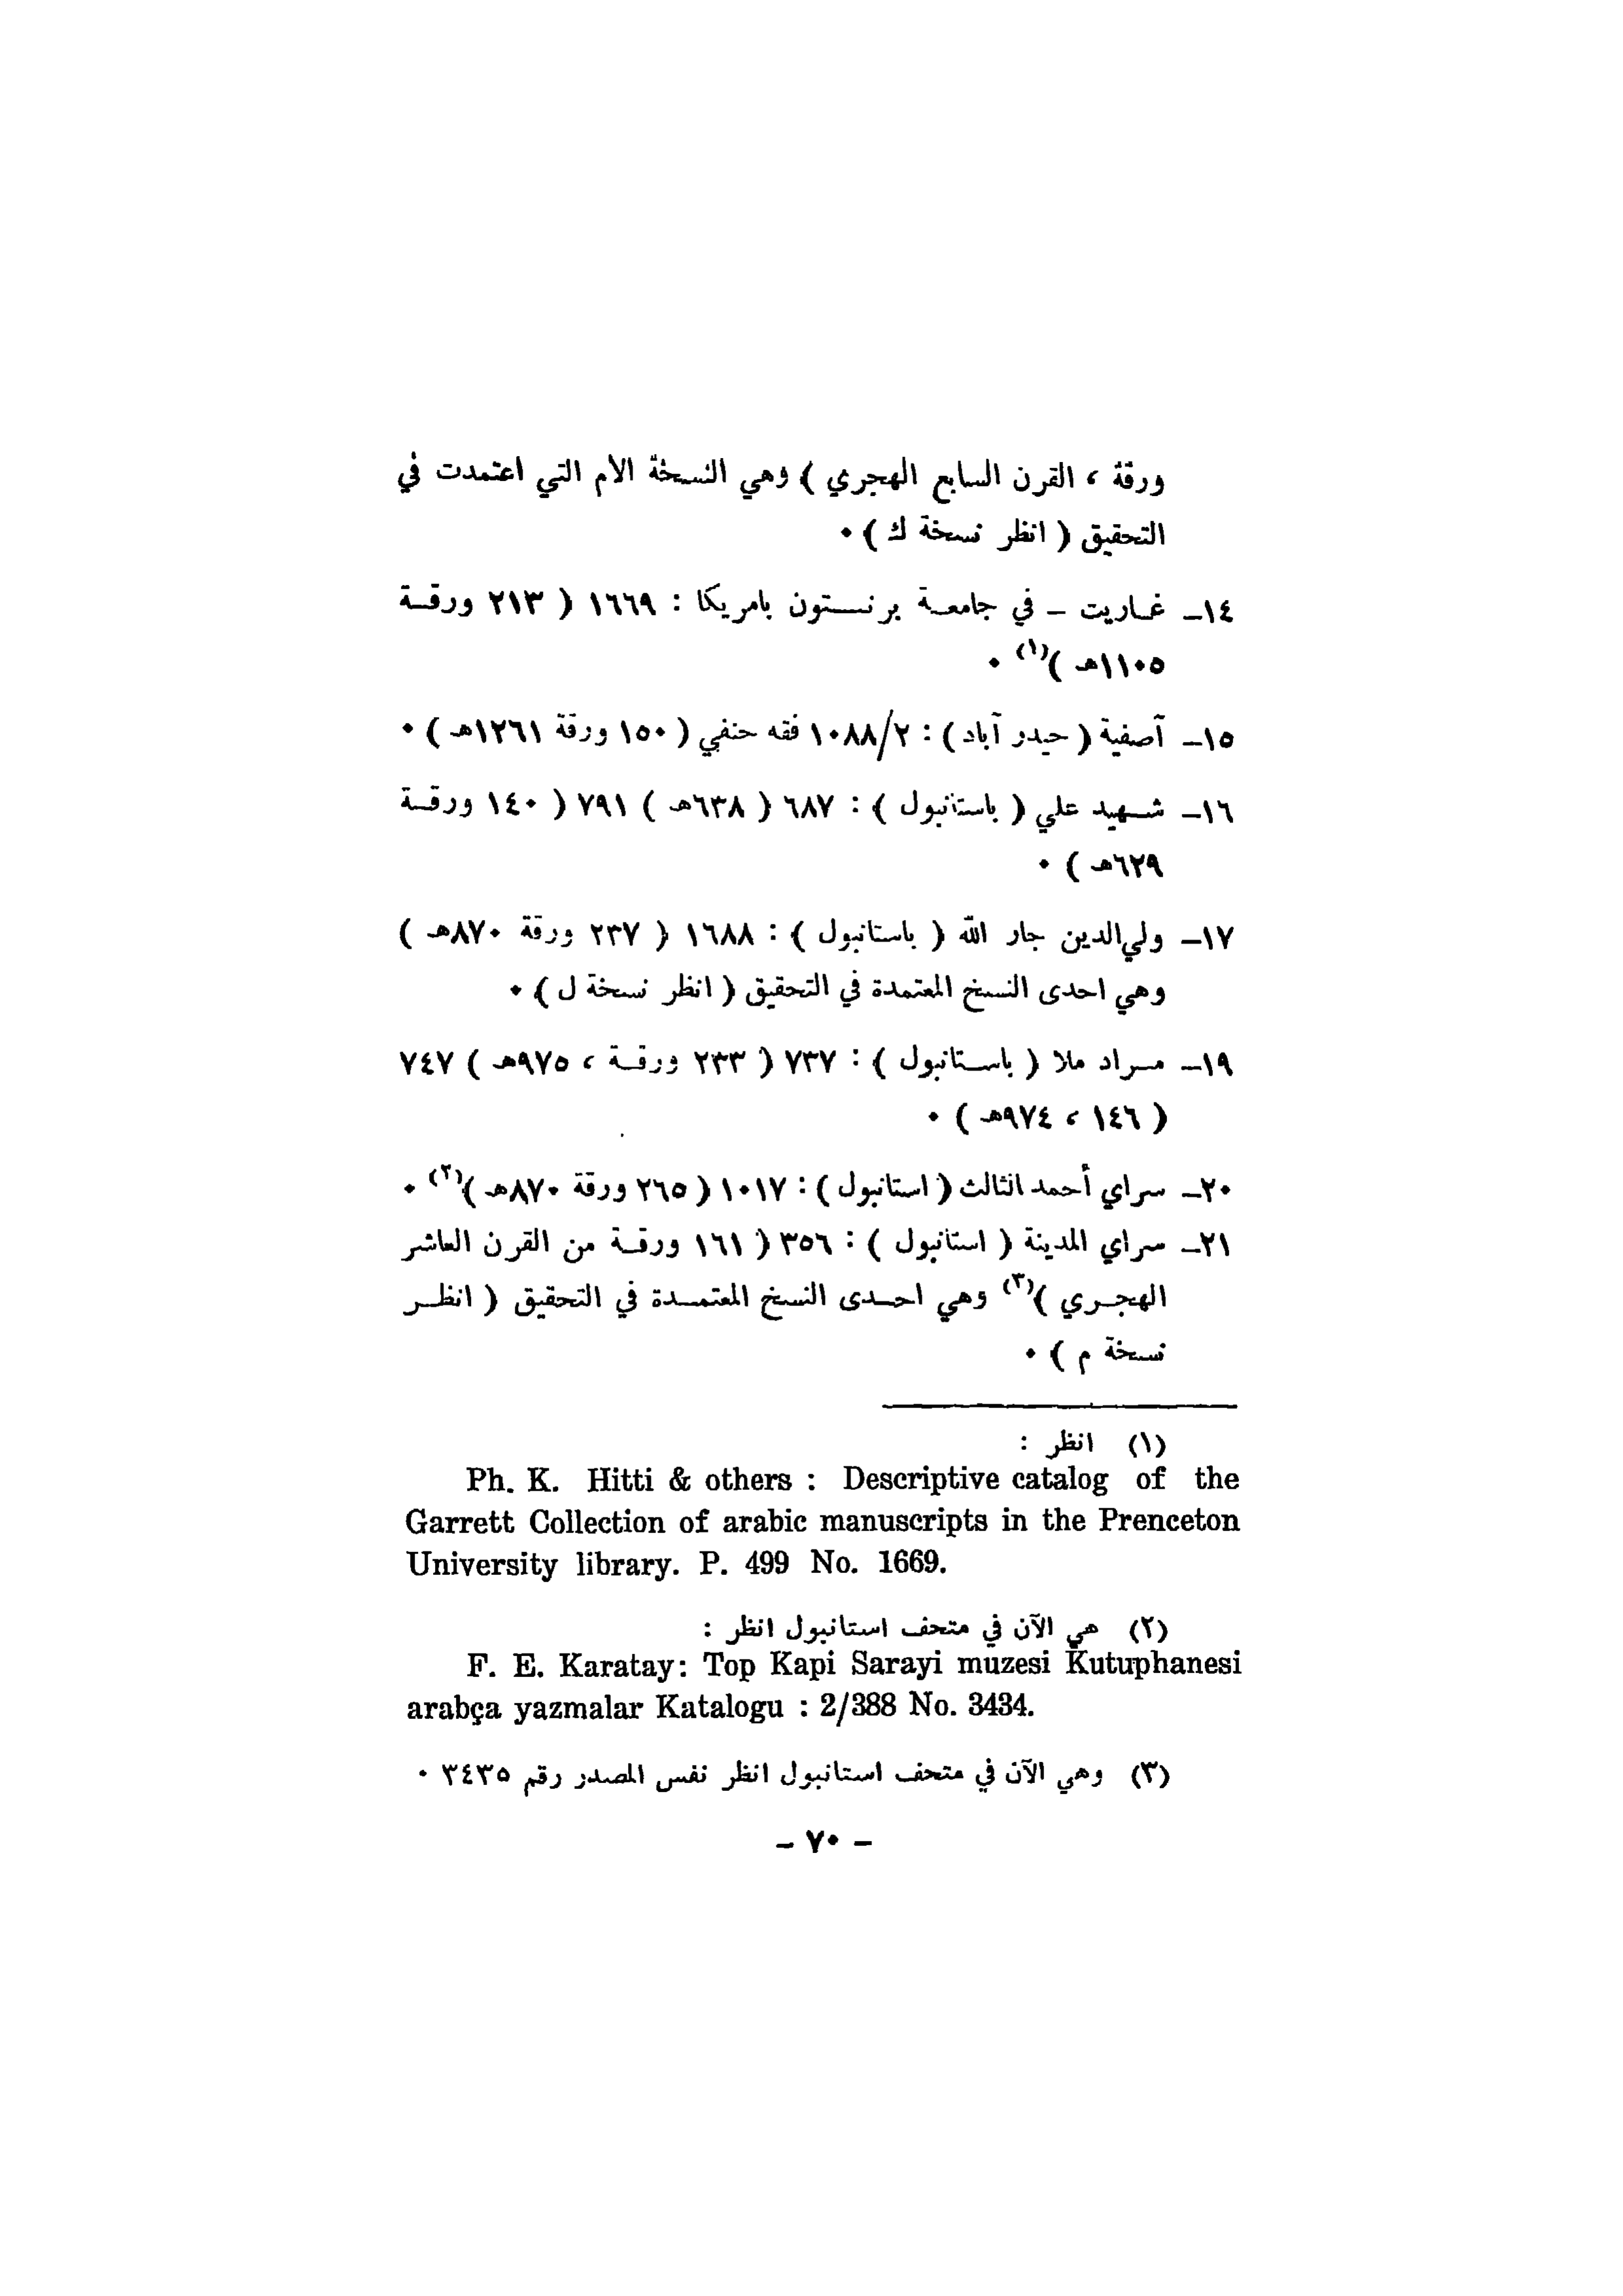 ورقة ، القرن السابع الهجري ) وهي النسخة الأم التي اعتمدت في
التحقيق ( انظر نسخة ك ) ٠
١٤ـ غاريت - في جامعة برنستون بامريكا : ١٦٦٩ ( ٢١٣ ورقة
١١٠٥هـ )(١) ٠
١٥ـ آصفية ( حيدر آباد ) : ١٠٨٨/٢ فقه حنفي ( ١٥٠ ورقة ١٢٦١هـ ) ٠
١٦ـ شهيد علي ( باستانبول ) : ٦٨٧ ( ٦٣٨هـ ) ٧٩١ ( ١٤٠ ورقة
٦٢٩هـ ) ٠
١٧ـ ولي‌الدين جار الله ( باستانبول ) : ١٦٨٨ ( ٢٣٧ ورقة ٨٧٠هـ )
وهي احدى النسخ المعتمدة في التحقيق ( انظر نسخة ل ) ٠
١٩ـ مراد ملا ( باستانبول ) : ٧٣٧ ( ٢٣٣ ورقة ، ٩٧٥هـ ) ٧٤٧
( ١٤٦ ، ٩٧٤هـ ) ٠
٢٠ـ سراي أحمد الثالث ( استانبول ) : ١٠١٧ ( ٢٦٥ ورقة ٨٧٠هـ )(٢) ٠
٢١ـ سراي المدينة ( استانبول ) : ٣٥٦ ( ١٦١ ورقة من القرن العاشر
الهجري )(٣) وهي احدى النسخ المعتمدة في التحقيق ( انظر
نسخة م ) ٠
(١) انظر :
Ph. K. Hitti & others : Descriptive catalog of the
Garrett Collection of arabic manuscripts in the Prenceton
University library. P. 499 No. 1669.
(٢) هي الآن في متحف استانبول انظر :
F. E. Karatay: Top Kapi Sarayi muzesi Kutuphanesi
arabça yazmalar Katalogu : 2/388 No. 3434.
(٣) وهي الآن في متحف استانبول انظر نفس المصدر رقم ٣٤٣٥ ٠
- ٧٠ -